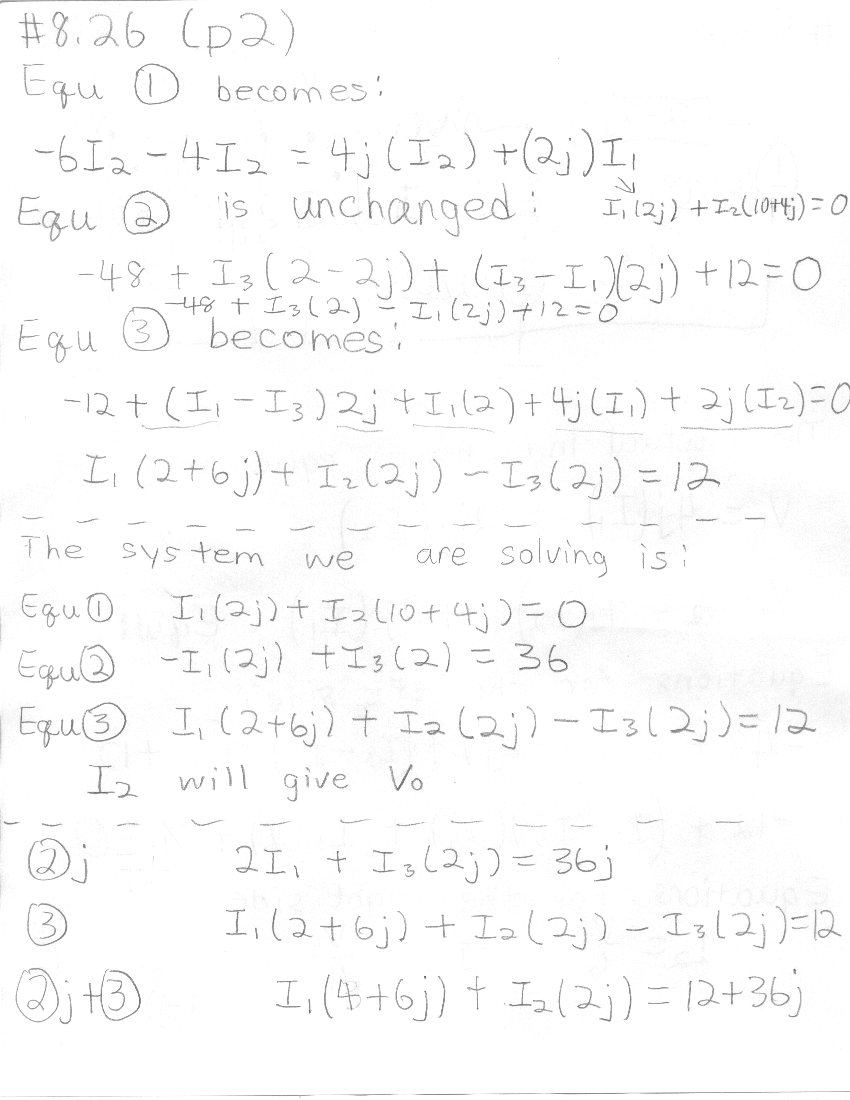 #8.26 (p2)
Equ ① becomes:
-6I₂ - 4I₂ = 4j(I₂) + (2j)I₁
↘
Equ ② is unchanged: I₁(2j) + I₂(10+4j) = 0
-48 + I₃(2-2j) + (I₃-I₁)(2j) + 12 = 0
-48 + I₃(2) - I₁(2j) + 12 = 0
Equ ③ becomes:
-12 + (I₁ - I₃)2j + I₁(2) + 4j(I₁) + 2j(I₂) = 0
I₁(2+6j) + I₂(2j) - I₃(2j) = 12
The system we are solving is:
Equ ① I₁(2j) + I₂(10+4j) = 0
Equ ② -I₁(2j) + I₃(2) = 36
Equ ③ I₁(2+6j) + I₂(2j) - I₃(2j) = 12
I₂ will give V₀
②j 2I₁ + I₃(2j) = 36j
③ I₁(2+6j) + I₂(2j) - I₃(2j) = 12
②j+③ I₁(4+6j) + I₂(2j) = 12+36j